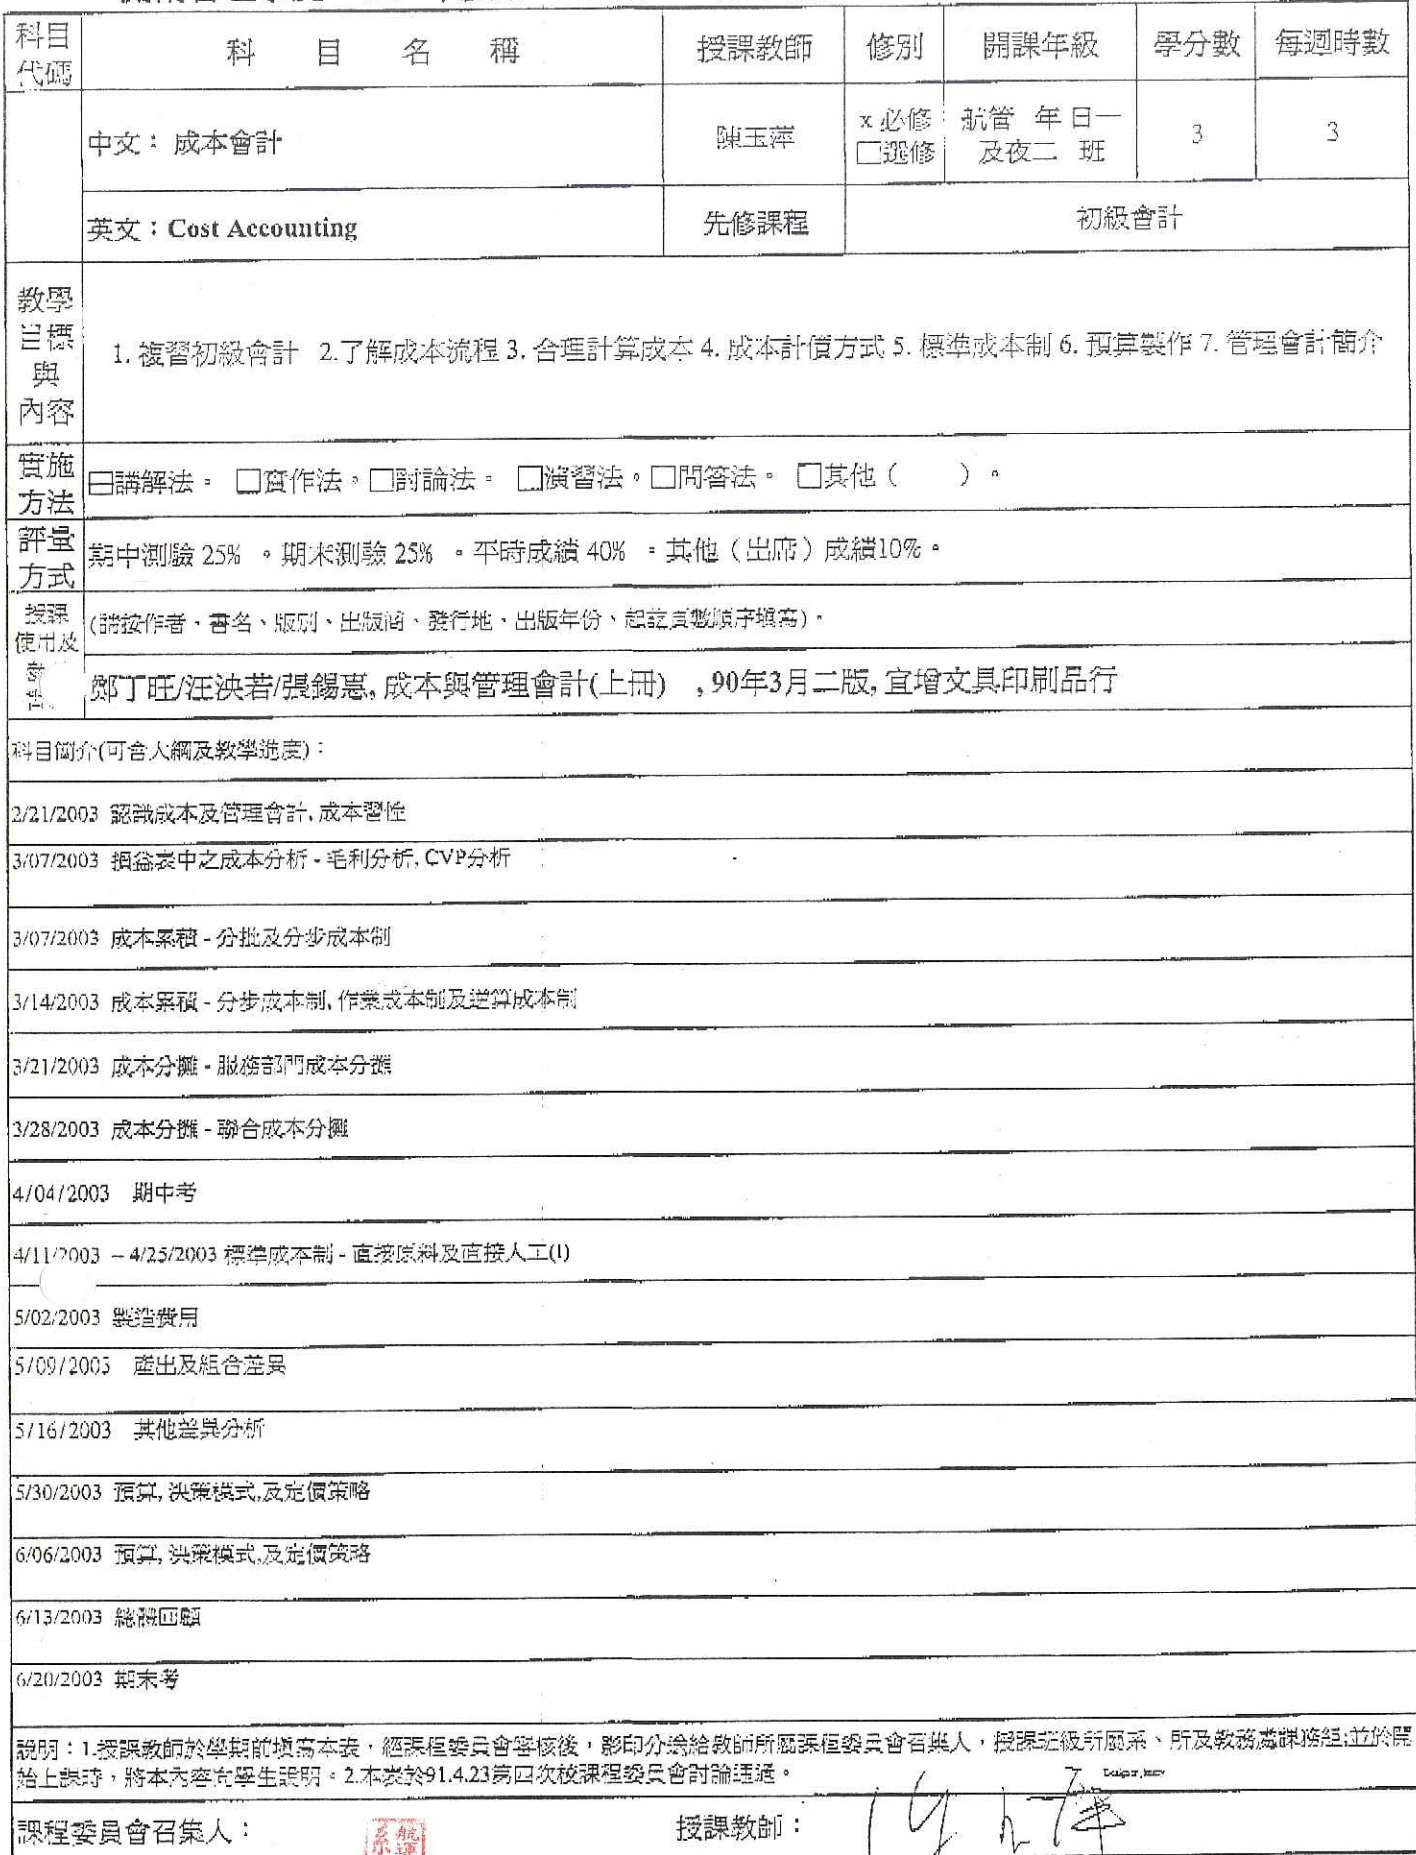 科目代碼 科目名稱 授課教師 修別 開課年級 學分數 每週時數
中文：成本會計 陳玉萍 x 必修 航管 年 日一 3 3
□選修 及夜二 班
英文：Cost Accounting 先修課程 初級會計
教學目標與內容
1. 複習初級會計 2.了解成本流程 3. 合理計算成本 4. 成本計價方式 5. 標準成本制 6. 預算製作 7. 管理會計簡介
實施方法
講解法。 □實作法。□討論法。 □演習法。□問答法。 □其他（ ）。
評量方式
期中測驗 25% 。期末測驗 25% 。平時成績 40% 。其他（出席）成績10%。
授課使用及
(請按作者、書名、版別、出版商、發行地、出版年份、起訖頁數順序填寫)。
鄭丁旺/汪泱若/張錫惠, 成本與管理會計(上冊) , 90年3月二版, 宜增文具印刷品行
科目簡介(可含大綱及教學進度)：
2/21/2003 認識成本及管理會計, 成本習性
3/07/2003 損益表中之成本分析 - 毛利分析, CVP分析
3/07/2003 成本累積 - 分批及分步成本制
3/14/2003 成本累積 - 分步成本制, 作業成本制及逆算成本制
3/21/2003 成本分攤 - 服務部門成本分攤
3/28/2003 成本分攤 - 聯合成本分攤
4/04/2003 期中考
4/11/2003 – 4/25/2003 標準成本制 - 直接原料及直接人工(1)
5/02/2003 製造費用
5/09/2003 產出及組合差異
5/16/2003 其他差異分析
5/30/2003 預算, 決策模式,及定價策略
6/06/2003 預算, 決策模式,及定價策略
6/13/2003 總體回顧
6/20/2003 期末考
說明：1.授課教師於學期前填寫本表，經課程委員會審核後，影印分送給教師所屬課程委員會召集人，授課班級所屬系、所及教務處課務組;並於開
始上課時，將本內容向學生說明。2.本表於91.4.23第四次校課程委員會討論通過。
課程委員會召集人： 授課教師：